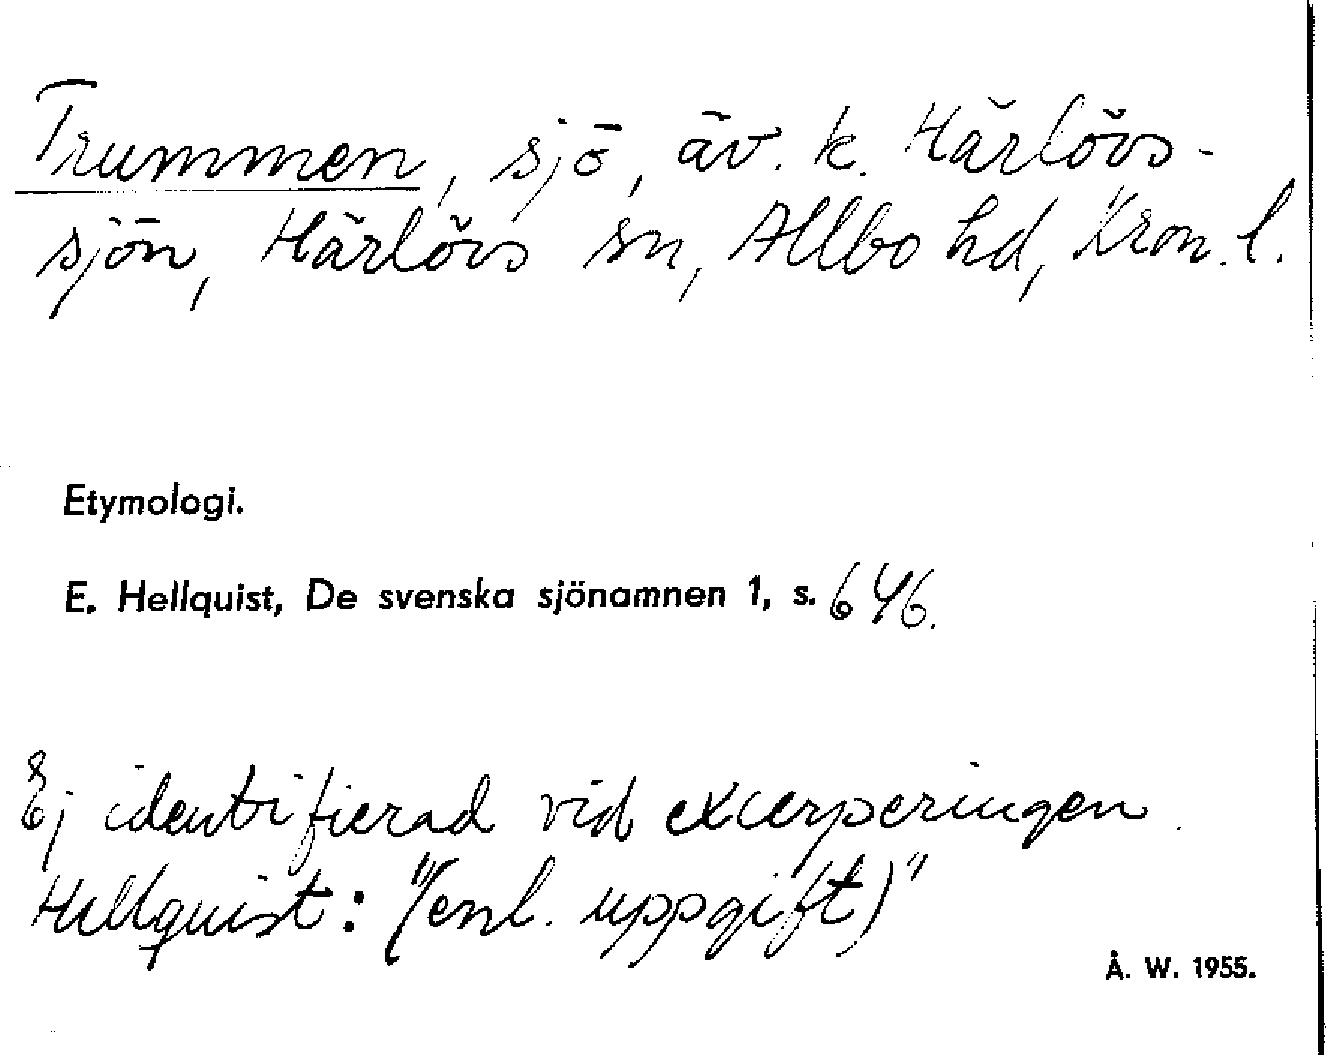 Trummen, sjö, äv. k. Härlövs-
sjön, Härlövs sn, Allbo hd, Kron. l.
Etymologi.
E. Hellquist, De svenska sjönamnen 1, s. 646.
Ej identifierad vid excerperingen.
Hellquist: "(enl. uppgift)"
Å. W. 1955.